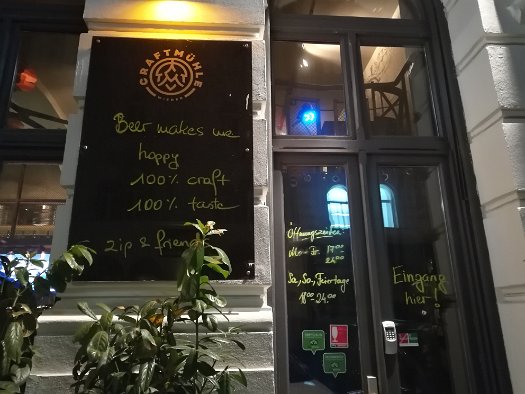 CRAFTMÜHLE
WIEDEN
Beer makes me
hoppy
100% craft
100% taste
zip & friends
Öffnungszeiten
Mo - Fr. 17.00
24.00
Sa, So, Feiertage
18.00 - 24.00
Eingang
hier